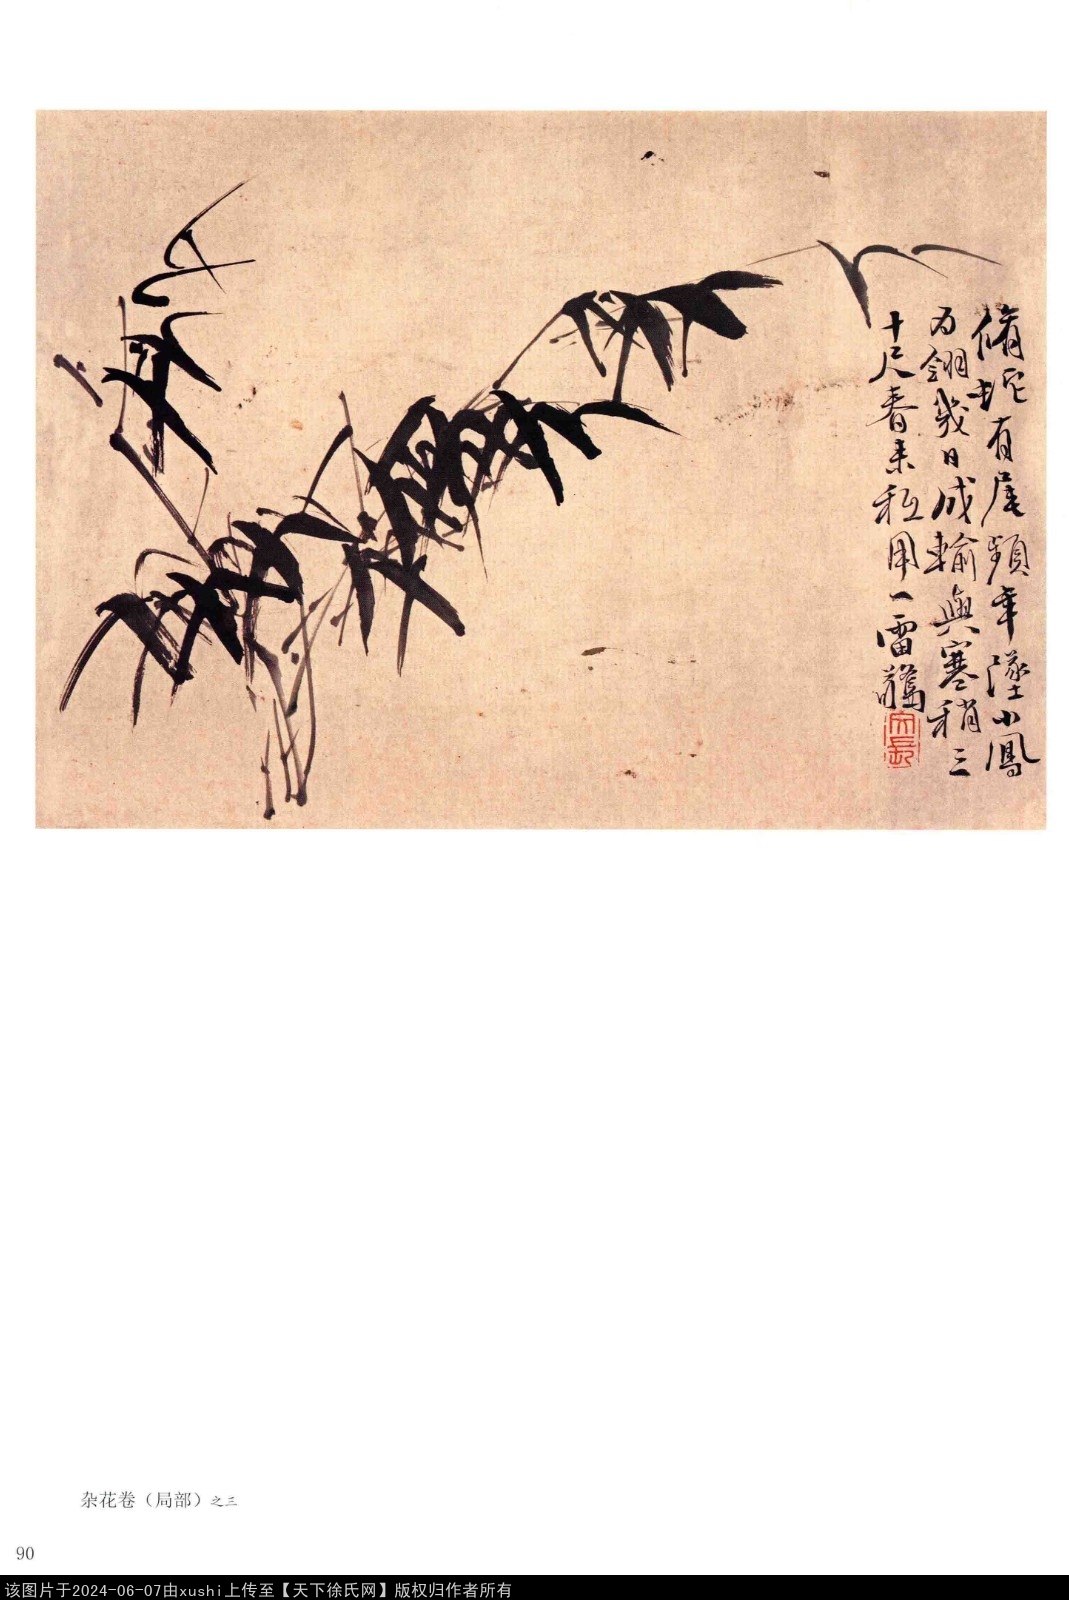 脩蛇有尾頻年墜小鳳
為翎幾日成輸與寒梢三
十尺春来秖用一雷驚
杂花卷（局部）之三
90
该图片于2024-06-07由xushi上传至【天下徐氏网】版权归作者所有